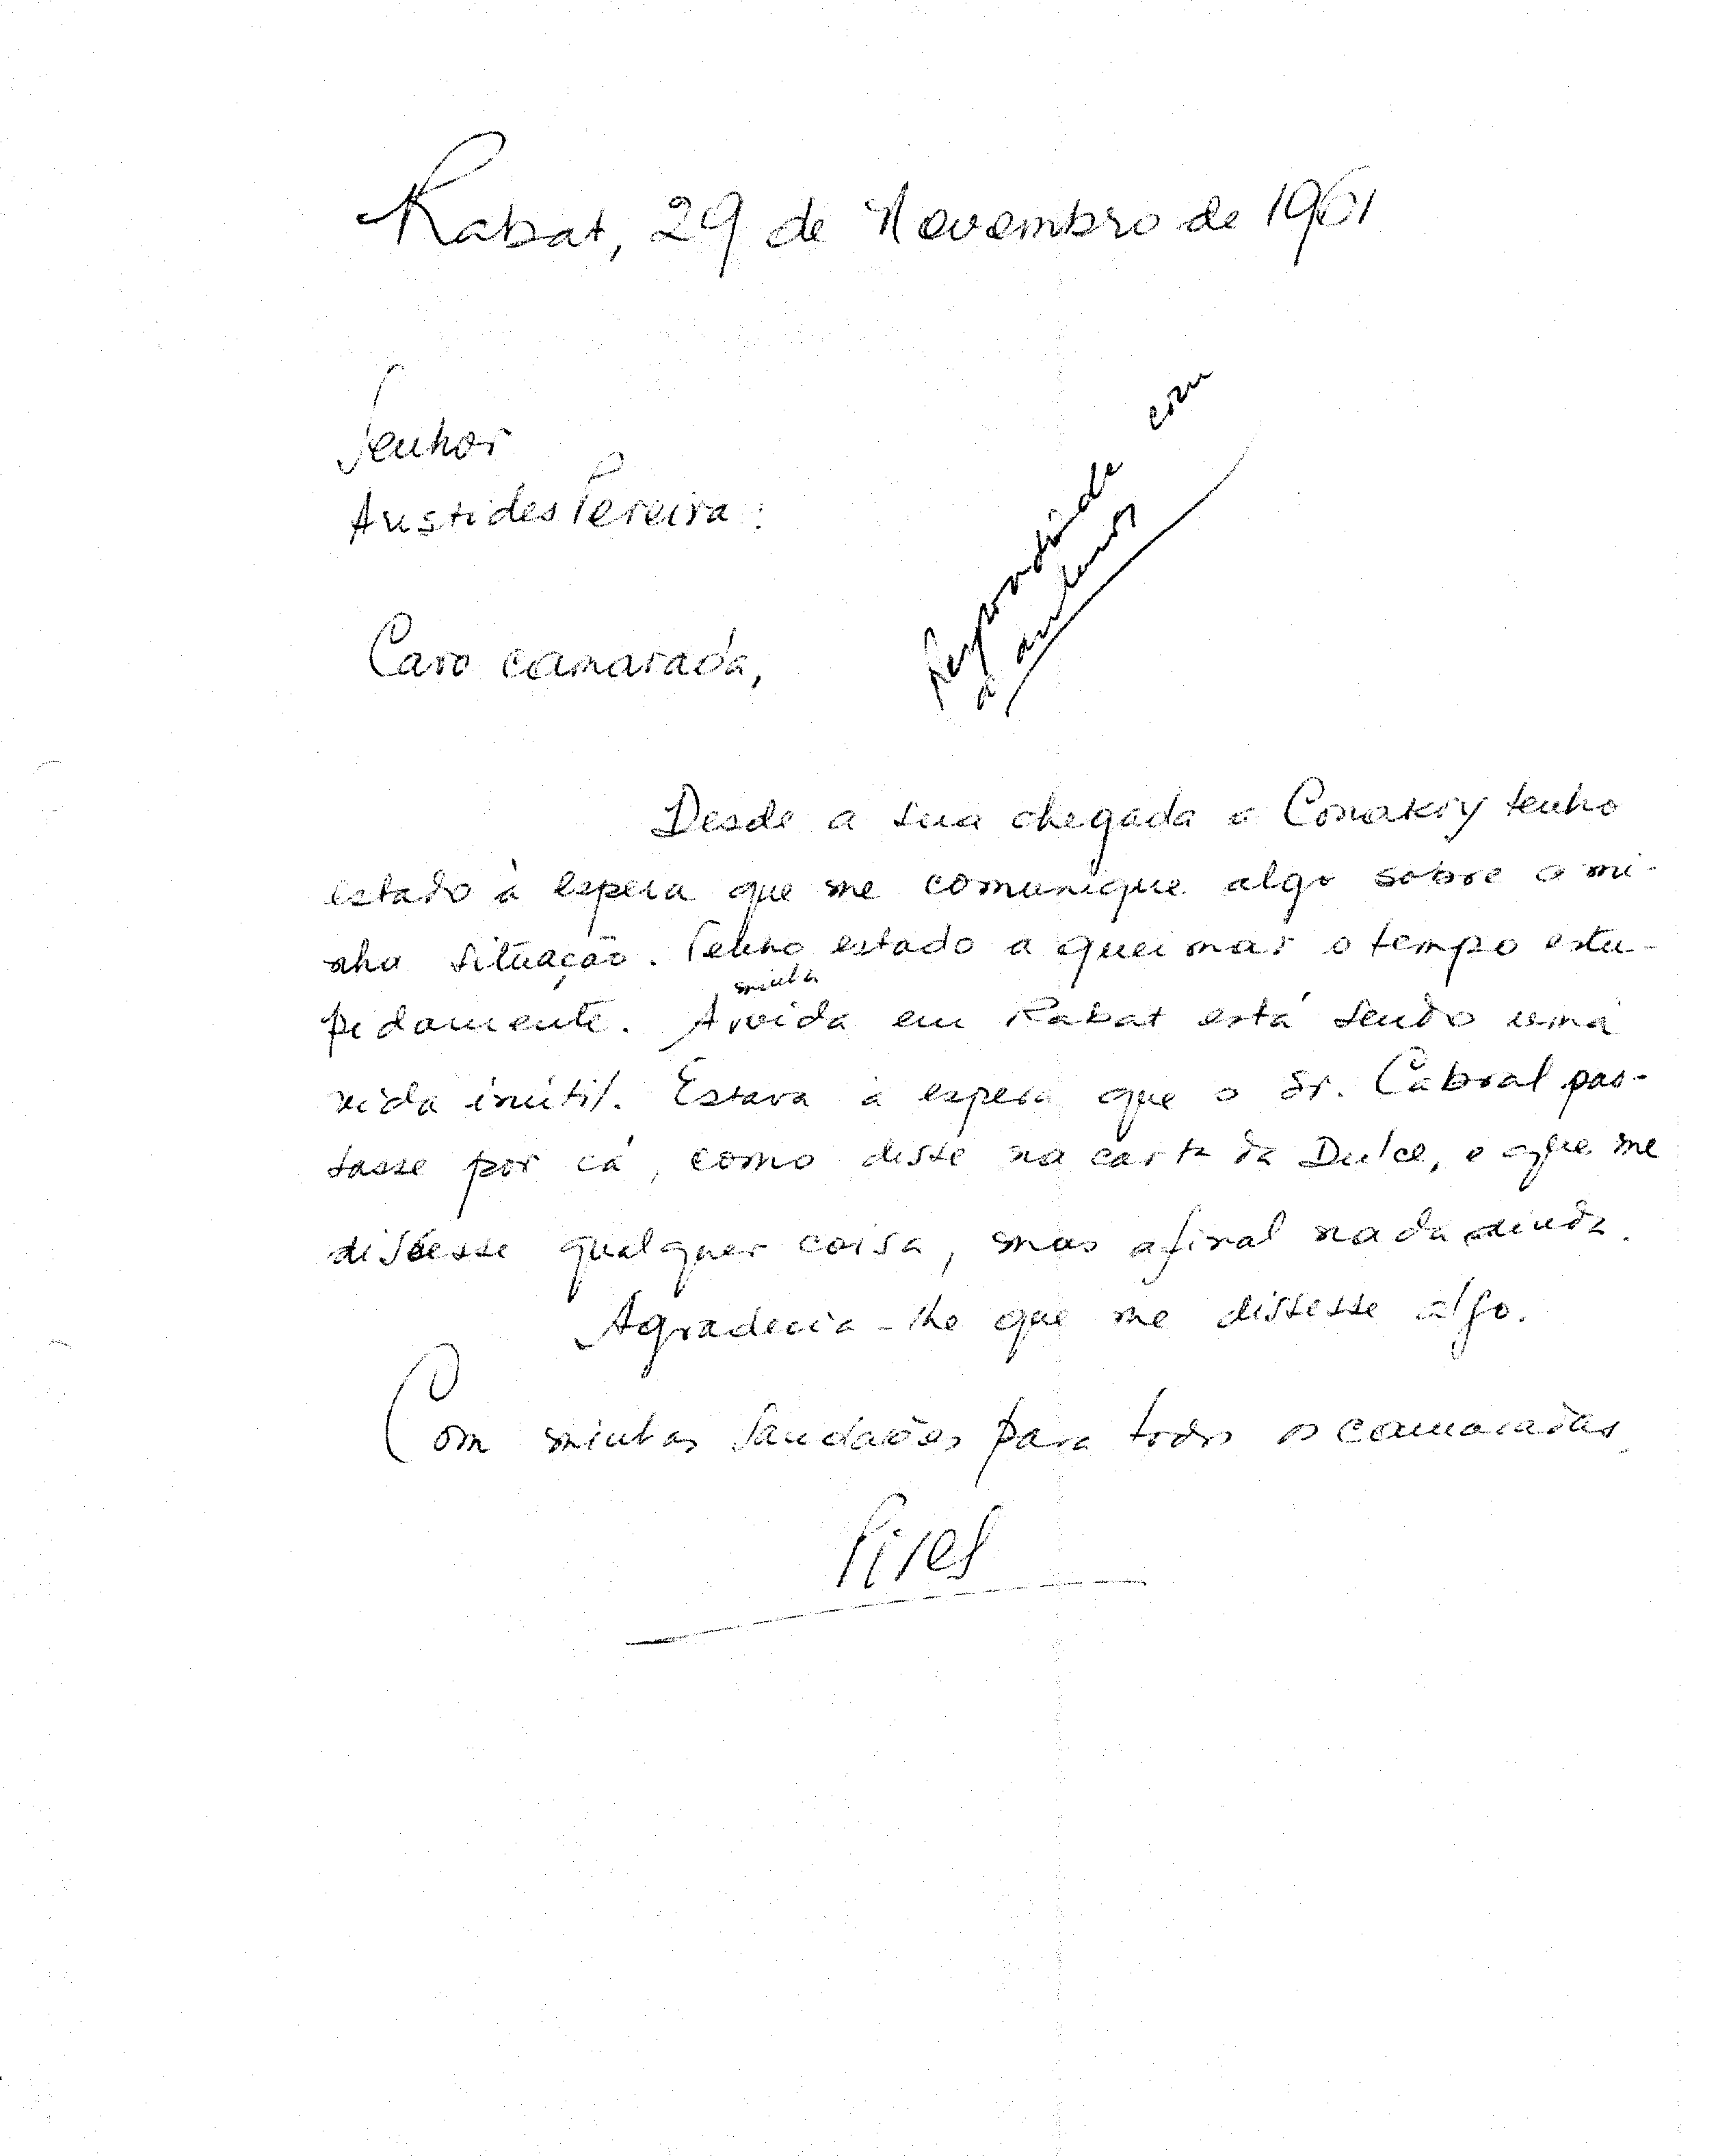 Rabat, 29 de Novembro de 1961
Senhor
Aristides Pereira:
Respondido com
a anterior
Caro camarada,
Desde a sua chegada a Conakry tenho
estado à espera que me comunique algo sobre a mi-
nha situação. Tenho estado a queimar o tempo estu-
pidamente. A minha vida em Rabat está sendo uma
vida inútil. Estava à espera que o Sr. Cabral pas-
sasse por cá, como disse na carta da Dulce, e que me
dissesse qualquer coisa, mas afinal nada ainda.
Agradecia-lhe que me dissesse algo.
Com minhas saudações para todos os camaradas.
Pires